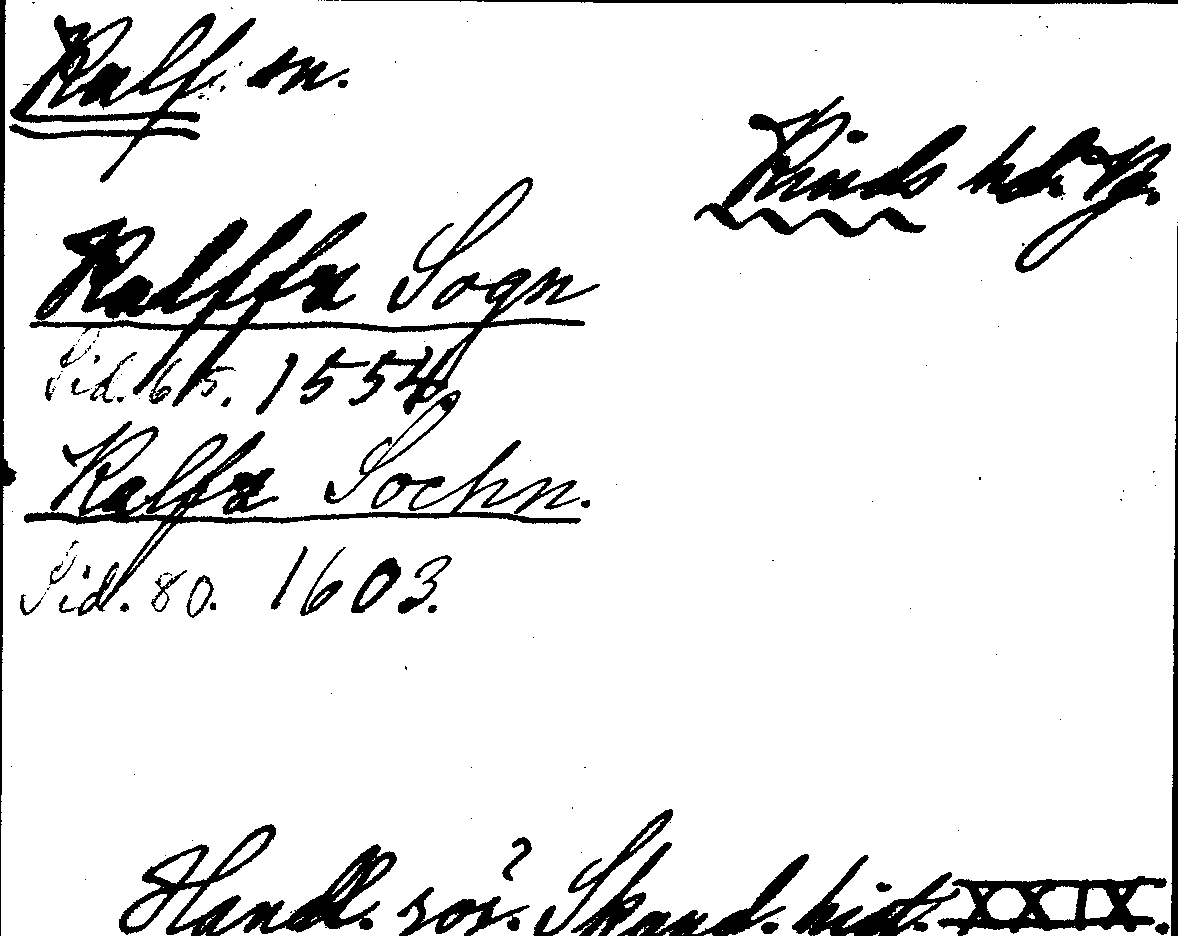 Kalf sn.
Kinds hd. Vg.
Kalffue Sogn
Sid. 65. 1554.
Kalfue Sochn.
Sid. 80. 1603.
Handl. rör. Skand. hist. XXIX.